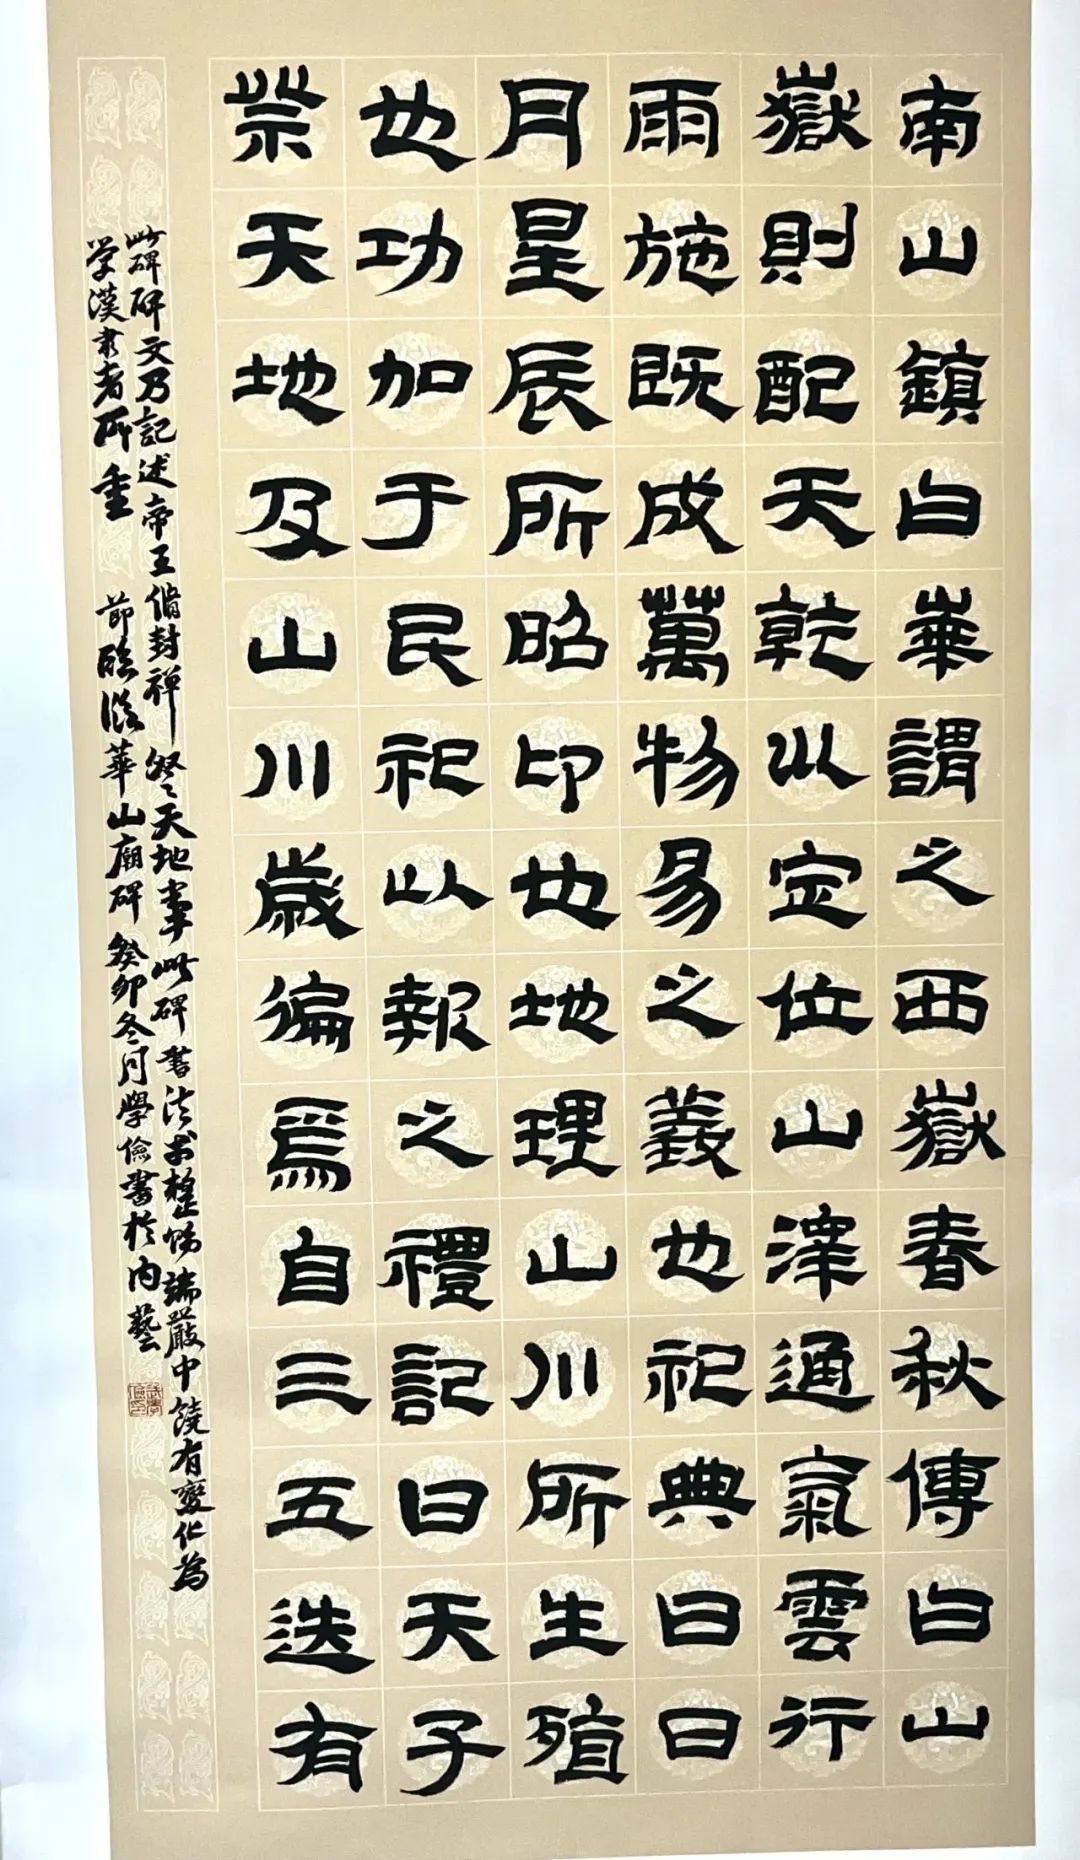 南山鎮白華謂之西嶽春秋傳白山
嶽則配天乾以定位山澤通氣雲行
雨施既成萬物易之義也祀典曰日
月星辰所昭卬也地理山川所生殖
也功加于民祀以報之禮記曰天子
祭天地及山川歲徧焉自三五迭有
此碑碑文乃記述帝王脩封禪祭天地事此碑書法於整飭端嚴中饒有變化為
学漢隶者所重 節臨華山廟碑癸卯冬月學儉書於内藝